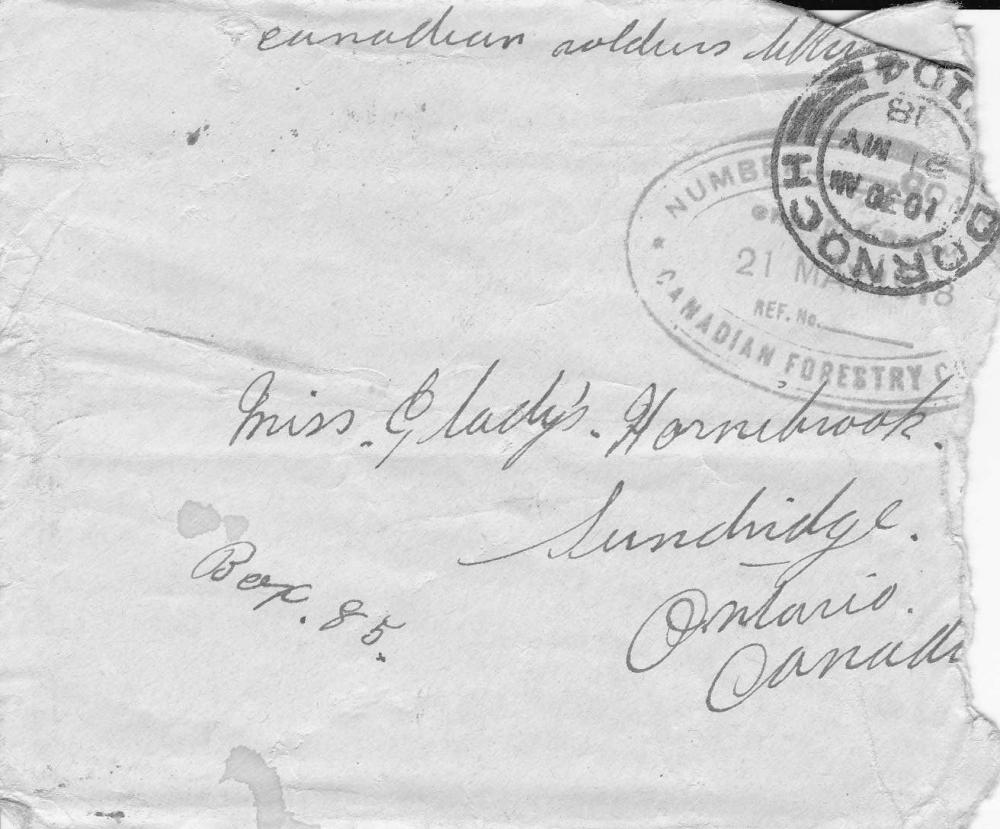 canadian soldiers letter
DORNOCH
18
MY
10.30 AM
NUMBE
21 MA 18
REF. No.
CANADIAN FORESTRY C
Miss. Glady's. Hornibrook.
Sundridge.
Box. 85.
Ontario.
Canada